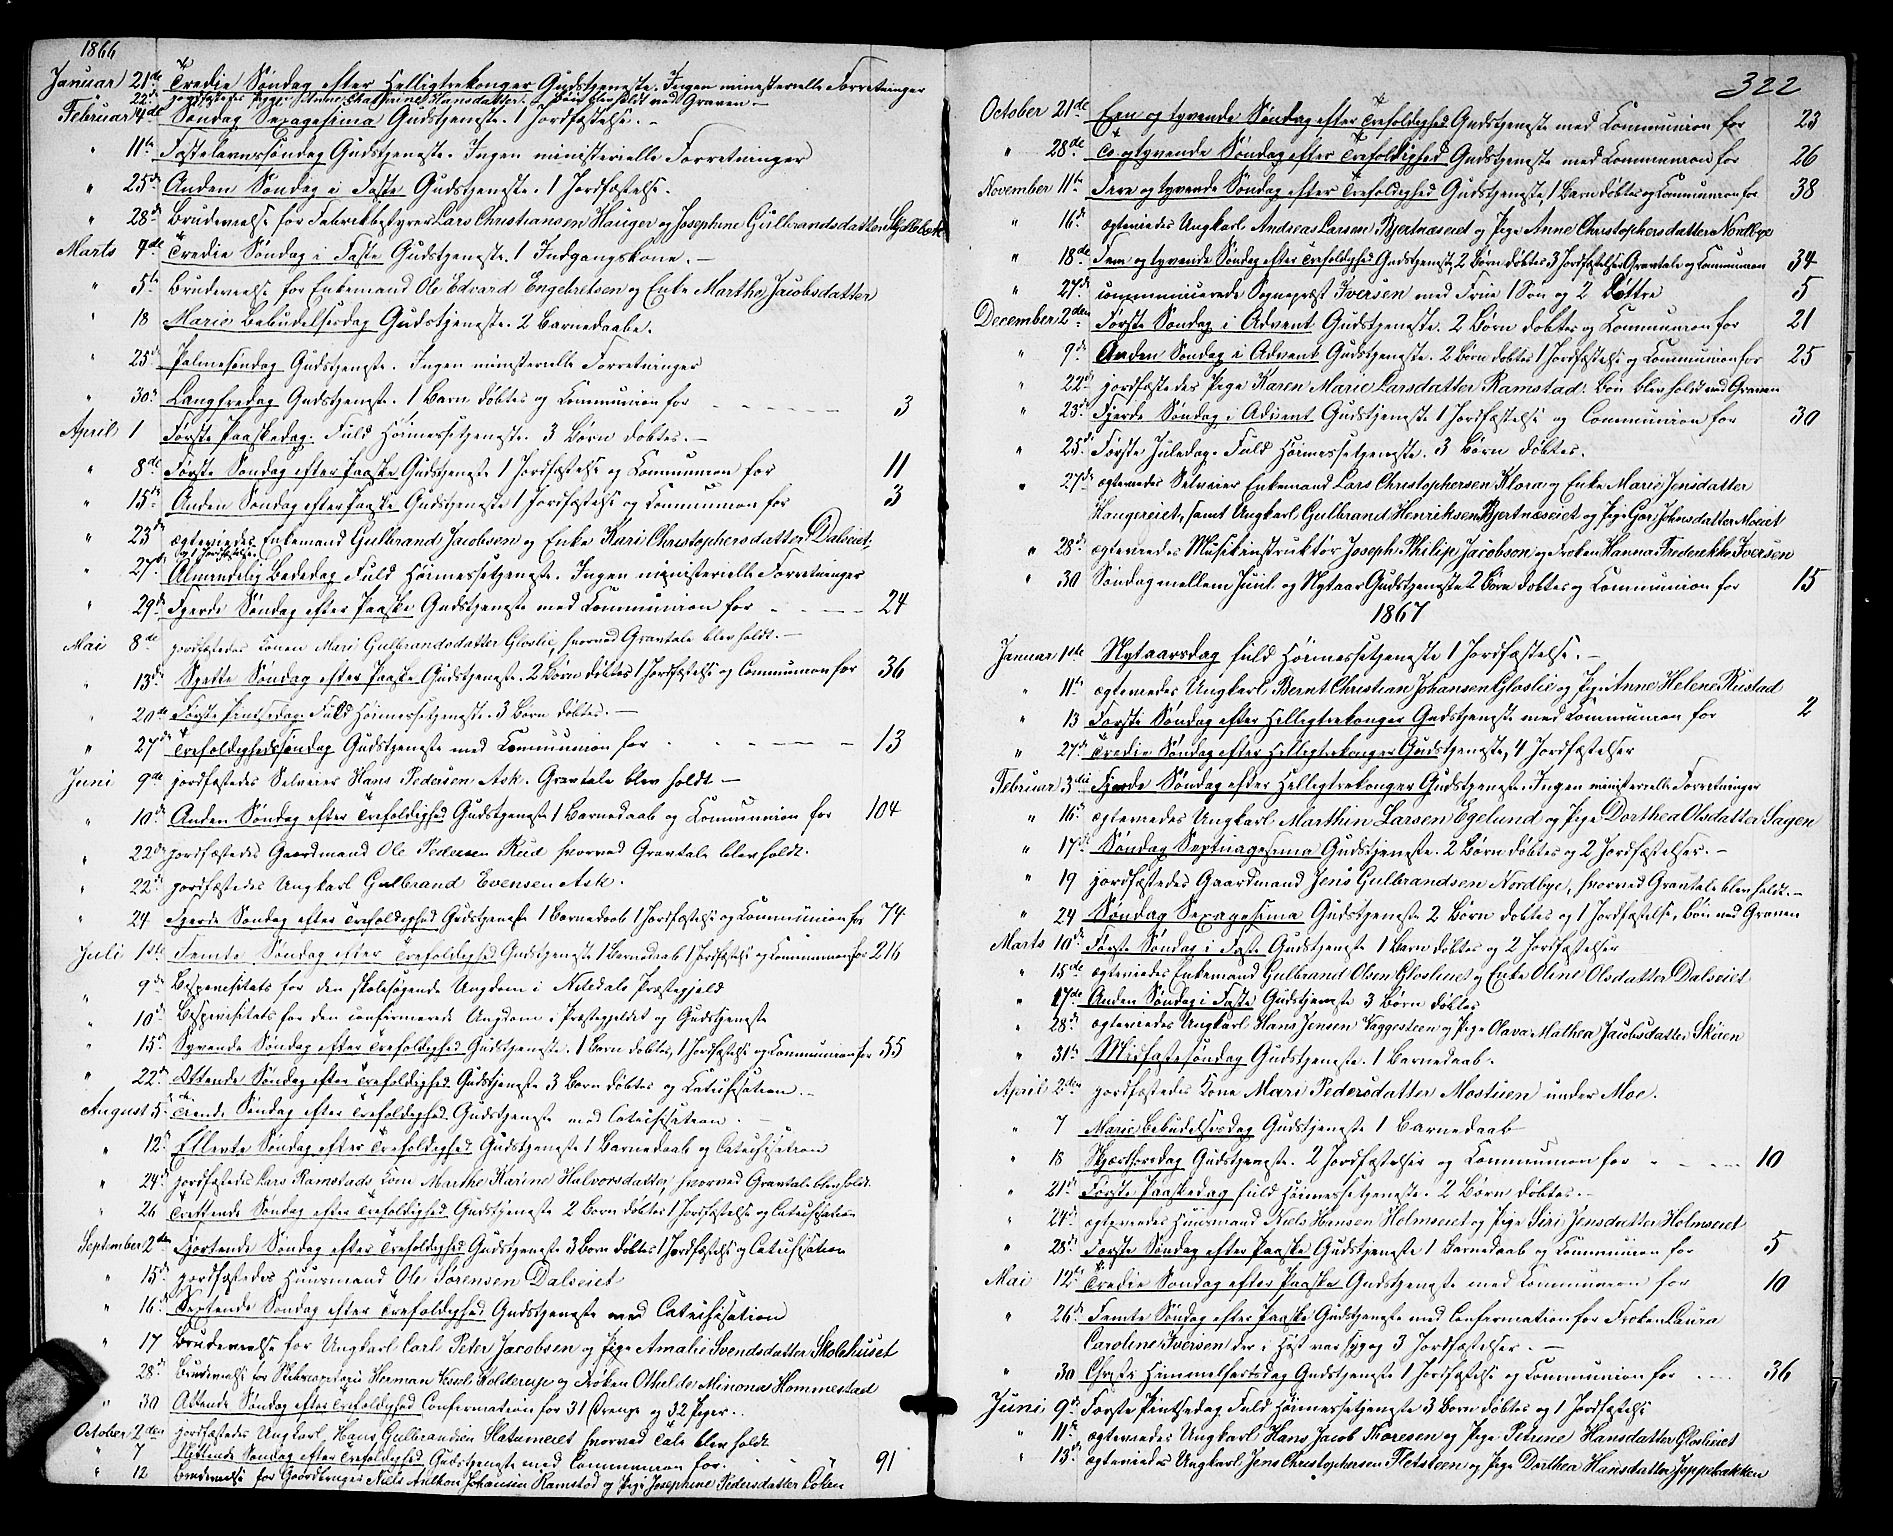 1866
Januar 21de Tredie Søndag efter Helligtrekonger Gudstjeneste. Ingen ministerielle Forretninger
22de jordfæstedes Pige Anne Chathrine Hansdatter. Bøn blev holdt ved Graven –
Februar 4de Søndag Sexagesima Gudstjeneste. 1 Jordfæstelse. –
" 11te Fastelavnssøndag Gudstjeneste. Ingen ministerielle Forretninger
" 25de Anden Søndag i Faste Gudstjeneste. 1 Jordfæstelse.
" 28de Brudevielse for Fabrikbestyrer Lars Christiansen Hauger og Josephine Gulbrandsdatter
Marts 4de Tredie Søndag i Faste Gudstjeneste. 1 Indgangskone. –
" 5te Brudevielse for Enkemand Ole Edvard Engebretsen og Enke Marthe Jacobsdatter
" 18 Mariæ Bebudelsesdag Gudstjeneste. 2 Barnedaabe.
" 25de Palmesøndag Gudstjeneste. Ingen ministerielle Forretninger
" 30te Langfredag Gudstjeneste. 1 Barn døbtes og Communion for 3
April 1 Første Paaskedag. Fuld Høimessetjeneste. 3 Børn døbtes. –
" 8de Første Søndag efter Paaske Gudstjeneste 1 Jordfæstelse og Communion for 11
" 15de Anden Søndag efter Paaske Gudstjeneste 1 Jordfæstelse og Communion for 3
" 23de ægteviedes Enkemand Gulbrand Jacobsen og Enke Kari Christophersdatter Dalseiet,
og 1 Jordfæstelse.
" 27de Almindelig Bededag Fuld Høimessetjeneste. Ingen ministerielle Forretninger
" 29de Fjerde Søndag efter Paaske Gudstjeneste med Communion for 24
Mai 8de jordfæstedes Konen Mari Gulbrandsdatter Gloslie, hvorved Gravtale blev holdt. –
" 13de Sjette Søndag efter Paaske Gudstjeneste. 2 Børn døbtes 1 Jordfæstelse og Communion for 36
" 20de Første Pintsedag. Fuld Høimessetjeneste. 3 Børn døbtes. –
" 27de Trefoldighedssøndag Gudstjeneste med Communion for 13
Juni 9de jordfæstedes Selveier Hans Pedersen Ask. Gravtale blev holdt –
" 10de Anden Søndag efter Trefoldighed Gudstjeneste 1 Barnedaab og Communion for 104
" 22de jordfæstedes Gaardmand Ole Pedersen Rud hvorved Gravtale blev holdt.
" 22de jordfæstedes Ungkarl Gulbrand Evensen Ask.
" 24 Fjerde Søndag efter Trefoldighed Gudstjeneste 1 Barnedaab 1 Jordfæstelse og Communion for 74
Juli 1ste Femte Søndag efter Trefoldighed Gudstjeneste 1 Barnedaab 1 Jordfæstelse og Communion for 216
" 9de Bispevisitats for den skolesøgende Ungdom i Nitedals Præstegjeld
" 10de Bispevisitats for den confirmerede Ungdom i Præstegjeldet og Gudstjeneste
" 15de Syvende Søndag efter Trefoldighed Gudstjeneste. 1 Barn døbtes, 1 Jordfæstelse og Communion for 55
" 22de Ottende Søndag efter Trefoldighed Gudstjeneste 3 Børn døbtes og Catechisation. –
August 5te Tiende Søndag efter Trefoldighed Gudstjeneste med Catechisation. –
" 12te Ellevte Søndag efter Trefoldighed Gudstjeneste 1 Barnedaab og Catechisation
" 24de jordfæstedes Lars Ramstads Kone Marthe Karine Halvorsdatter, hvorved Gravtale blev holdt.
" 26 Trettende Søndag efter Trefoldighed Gudstjeneste 2 Børn døbtes 1 Jordfæstelse og Catechisation
September 2den Fjortende Søndag efter Trefoldighed Gudstjeneste 3 Børn døbtes 1 Jordfæstelse og Catechisation
" 15de jordfæstedes Huusmand Ole Sørensen Dalseiet
" 16de Sextende Søndag efter Trefoldighed Gudstjeneste med Catechisation
" 17 Brudevielse for Ungkarl Carl Peter Jacobsen og Pige Amalie Svendsdatter Skolehuset
" 28de Brudevielse for Herman Kolderup og Frøken Othelde Minona Hommestad
" 30 Attende Søndag efter Trefoldighed Confirmation for 31 Drenge og 32 Piger.
October 2den jordfæstedes Ungkarl Hans Gulbrandsen Slatumeiet hvorved Tale blev holdt
" 7 Nittende Søndag efter Trefoldighed Gudstjeneste med Communion for 91
" 12 Brudevielse for Gaardbruger Niels Anthon Johansen Ramstad og Pige Josephine Pedersdatter Løken
322
October 21de Een og tyvende Søndag efter Trefoldighed Gudstjeneste med Communion for 23
" 28de To og tyvende Søndag efter Trefoldighed Gudstjeneste med Communion for 26
November 11te Fire og tyvende Søndag efter Trefoldighed Gudstjeneste, 1 Barn døbtes og Communion for 38
" 16de ægteviedes Ungkarl Andreas Larsen Bjertnæseiet og Pige Anne Christophersdatter Nordbye
" 18de Fem og tyvende Søndag efter Trefoldighed Gudstjeneste, 2 Børn døbtes 3 Jordfæstelser Gravtale og Communion 34
" 27de communicerede Sognepræst Iversen med Frue 1 Søn og 2 Døttre 5
December 2den Første Søndag i Advent Gudstjeneste. 2 Børn døbtes og Communion for 21
" 9de Anden Søndag i Advent Gudstjeneste. 2 Børn døbtes 1 Jordfæstelse og Communion for 25
" 22de jordfæstedes Pige Karen Marie Larsdatter Ramstad. Bøn blev holdt ved Graven
" 23de Fjerde Søndag i Advent Gudstjeneste 1 Jordfæstelse og Communion for 30
" 25de Første Juledag. Fuld Høimessetjeneste. 3 Børn døbtes.
" 27de ægteviedes Selveier Enkemand Lars Christophersen Klora og Enke Marie Jensdatter
Haugereiet, samt Ungkarl Gulbrand Henriksen Bjertnæseiet og Pige Gori Johnsdatter Moeiet
" 28de ægteviedes Musikinstruktør Joseph Philip Jacobsen og Frøken Hanna Frederikke Iversen
" 30 Søndag mellem Juul og Nytaar Gudstjeneste 2 Børn døbtes og Communion for 15
1867
Januar 1ste Nytaarsdag fuld Høimessetjeneste 1 Jordfæstelse. –
" 11te ægteviedes Ungkarl Bernt Christian Johansen Gloslie og Pige Anne Helene Rustad
" 13 Første Søndag efter Helligtrekonger Gudstjeneste med Communion for 2
" 27de Tredie Søndag efter Helligtrekonger Gudstjeneste, 4 Jordfæstelser
Februar 3die Fjerde Søndag efter Helligtrekonger Gudstjeneste. Ingen ministerielle Forretninger
" 16de ægteviedes Ungkarl Marthin Larsen Egelund og Pige Dorthea Olsdatter Sagen
" 17de Søndag Septuagesima Gudstjeneste. 2 Børn døbtes og 2 Jordfæstelser. –
" 19 jordfæstedes Gaardmand Jens Gulbrandsen Nordbye, hvorved Gravtale blev holdt. –
" 24 Søndag Sexagesima Gudstjeneste 2 Børn døbtes og 1 Jordfæstelse, Bøn ved Graven
Marts 10de Første Søndag i Faste Gudstjeneste 1 Barn døbtes og 2 Jordfæstelser
" 15de ægteviedes Enkemand Gulbrand Olsen Gloslieiet og Enke Oline Olsdatter Dalseiet
" 17de Anden Søndag i Faste Gudstjeneste 3 Børn døbtes
" 28de ægteviedes Ungkarl Hans Jensen Vaggesteen og Pige Olava Mathea Jacobsdatter Skøien
" 31te Midfastesøndag Gudstjeneste. 1 Barnedaab.
April 2den jordfæstedes Kone Mari Pedersdatter Mostuen under Moe.
" 7 Mariæ Bebudelsesdag Gudstjeneste 1 Barnedaab
" 18 Skjærthorsdag Gudstjeneste. 2 Jordfæstelser og Communion for 10
" 21de Første Paaskedag fuld Høimessetjeneste. 2 Børn døbtes. –
" 24de ægteviedes Huusmand Niels Hansen Holmseiet og Pige Siri Jensdatter Holmseiet
" 28de Første Søndag efter Paaske Gudstjeneste 1 Barnedaab og Communion for 5
Mai 12te Tredie Søndag efter Paaske Gudstjeneste med Communion for 10
" 26de Femte Søndag efter Paaske Gudstjeneste med Confirmation for Frøken Laura
Caroline Iversen der i Høst var syg og 3 Jordfæstelser. –
" 30 Christi Himmelfartsdag Gudstjeneste 1 Jordfæstelse og Communion for 36
Juni 9de Første Pintsedag Fuld Høimessetjeneste 3 Børn døbtes og 1 Jordfæstelse
" 11te ægteviedes Ungkarl Hans Jacob Thoresen og Pige Petrine Hansdatter Gloslieiet
" 13de ægteviedes Ungkarl Jens Christophersen Fletsteen og Pige Dorthea Hansdatter Jeppebakken